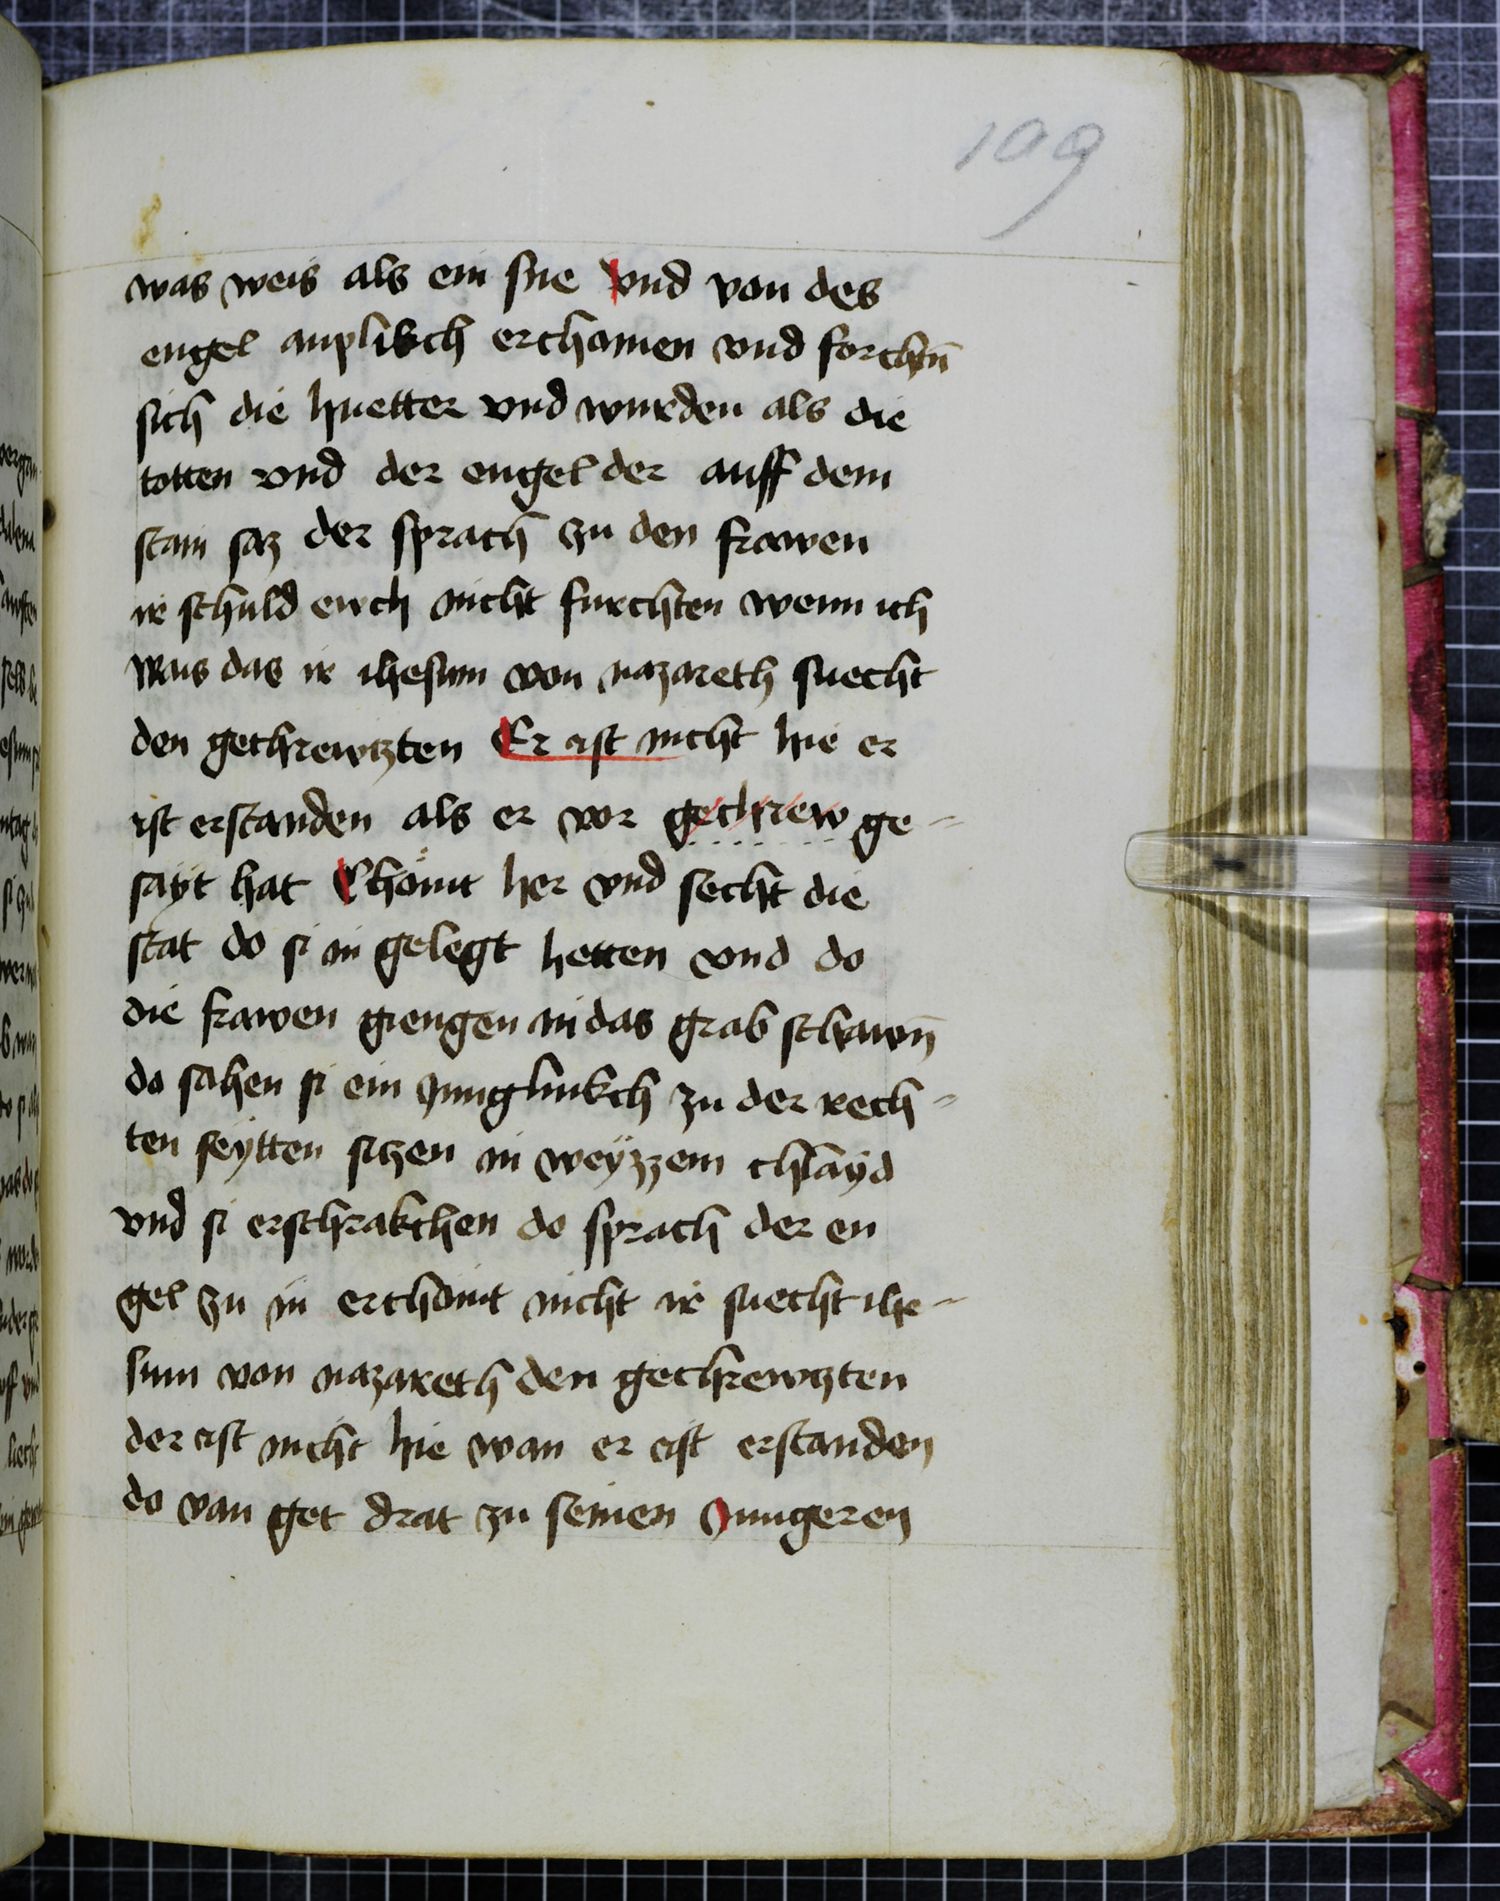 109
was weis als ein sne vnd von des
engel anplikch erchamen vnd forchtn̄
sich die huetter vnd wurden als die
totten vnd der engel der auff dem
stain saz der sprach zu den frawen
ir schuld ewch nicht furchten wenn ich
wais das ir ihesum von nazareth suecht
den gechrewtzten Er ist nicht hie er
ist erstanden als er vor gechrew ge-
sayt hat Chomt her vnd secht die
stat do si in gelegt hetten vnd do
die frawen giengen in das grab schawn̄
do sahen si ein Junglinkch zu der rech-
ten seytten sitzen in weyzzem chlayd
vnd si erschrakchen do sprach der en
gel zu in erchomt nicht ir suecht ihe-
sum von nazareth den gechrewtzten
der ist nicht hie wan er ist erstanden
do van get drat zu seinen Jungeren